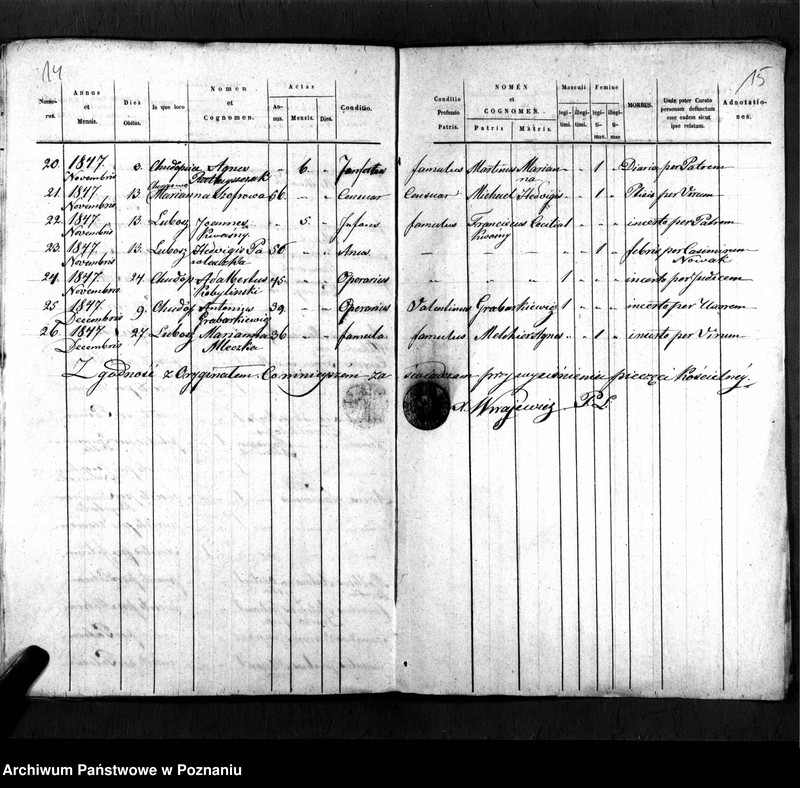 14
15
Numerus. Annus et Mensis. Dies Obitus. In quo loco Nomen et Cognomen. Aetas Annus. Mensis. Dies. Conditio.
Conditio Professio Patris. NOMEN et COGNOMEN. Patris Matris. Masculi legitimi. illegitimi. Femine legitimae. illegitimae MORBUS. Unde pater Curato personam defunctam esse eadem sicut ipse relatum. Adnotationes.
20. 1847 Novembris 3. Chudopice Agnes 6. famulus Martinus Marianna 1 Diaria per Patrem
21. 1847 Novembris 13. Marianna 56. Consuar Consuar Michael Hedvigis 1 per Virum
22. 1847 Novembris 13. Lubosz Joannes 5. Infans famulus Franciscus Cecilia 1 incerto per Patrem
23. 1847 Novembris 13. Lubosz Hedvigis 56 Anus 1 febris per Casimirum Nowak
24. 1847 Novembris 24. Chudop Adalbertus Kobyliński 45 Operarius 1 incerto per Judicem
25. 1847 Decembris 9. Chudop Antonius Grabarkiewicz 39 Operarius Valentinus Grabarkiewicz 1 incerto per Uxorem
26. 1847 Decembris 27 Lubosz Marianna Mleczka 36 famula famulus Melchior Agnes 1 incerto per Virum
Zgodność z Oryginałem Co niniejszem zaświadczam przy wyciśnieniu pieczęci Kościelnej.
X. P. L.
Archiwum Państwowe w Poznaniu